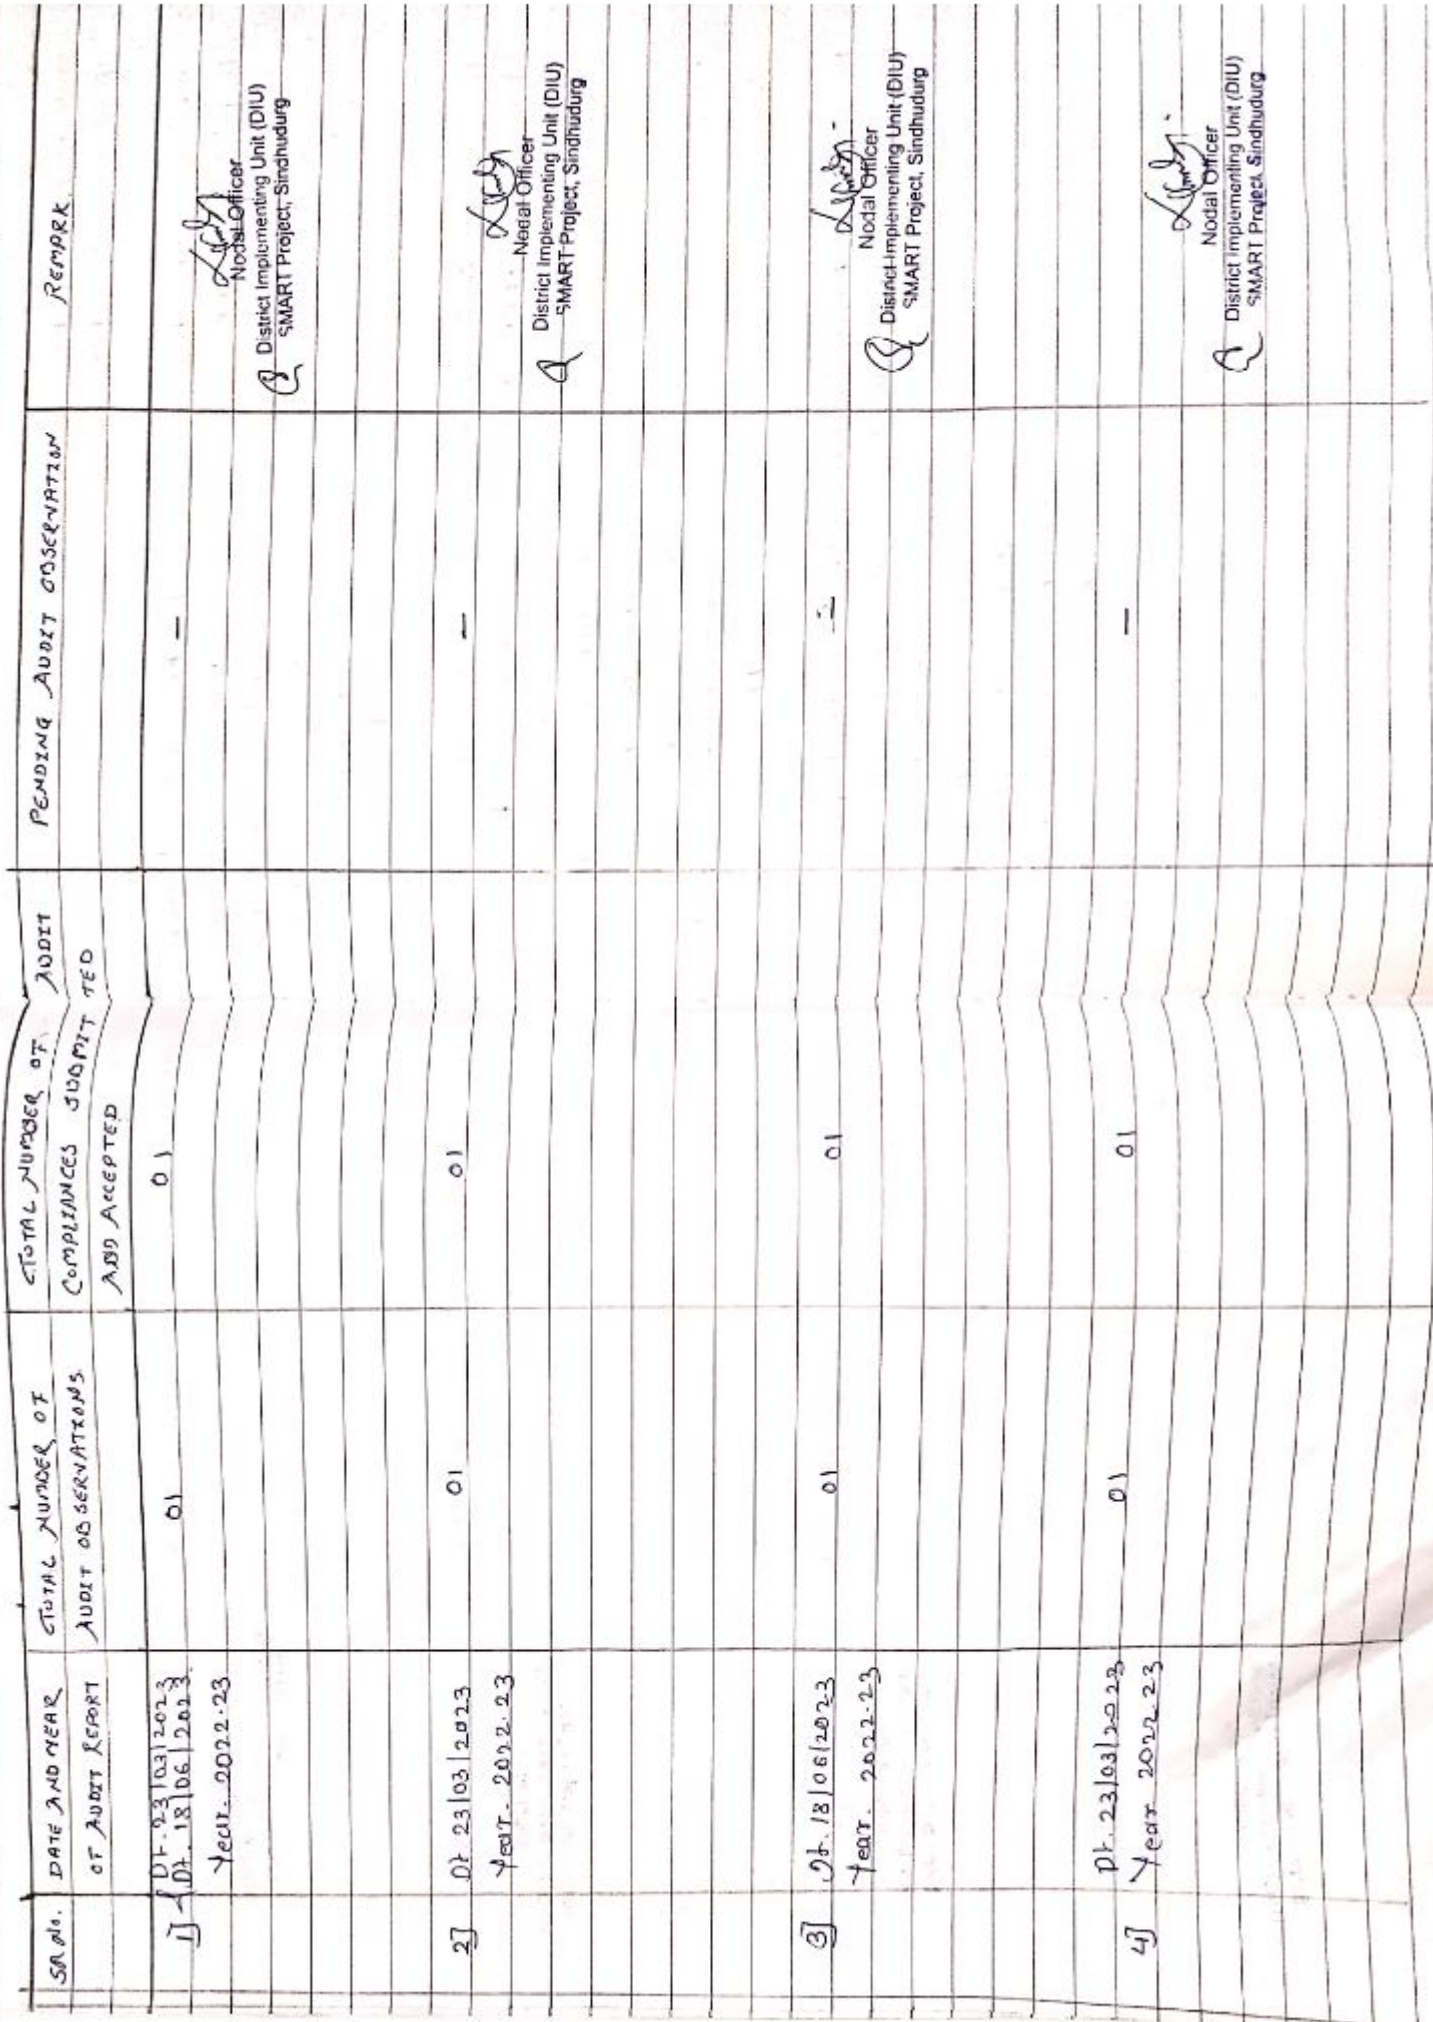 SR No.
DATE AND YEAR
OF AUDIT REPORT
TOTAL NUMBER OF
AUDIT OBSERVATIONS
TOTAL NUMBER OF AUDIT
COMPLIANCES SUBMITTED
AND ACCEPTED
PENDING AUDIT OBSERVATION
REMARK
1] Dt. 23/03/2023
Dt. 18/06/2023
Year. 2022.23
01
01
—
Nodal Officer
District Implementing Unit (DIU)
SMART Project, Sindhudurg
2] Dt 23/03/2023
Year. 2022.23
01
01
—
Nodal Officer
District Implementing Unit (DIU)
SMART Project, Sindhudurg
3] Dt. 18/06/2023
Year. 2022.23
01
01
—
Nodal Officer
District Implementing Unit (DIU)
SMART Project, Sindhudurg
4] Dt. 23/03/2023
Year 2022.23
01
01
—
Nodal Officer
District Implementing Unit (DIU)
SMART Project, Sindhudurg